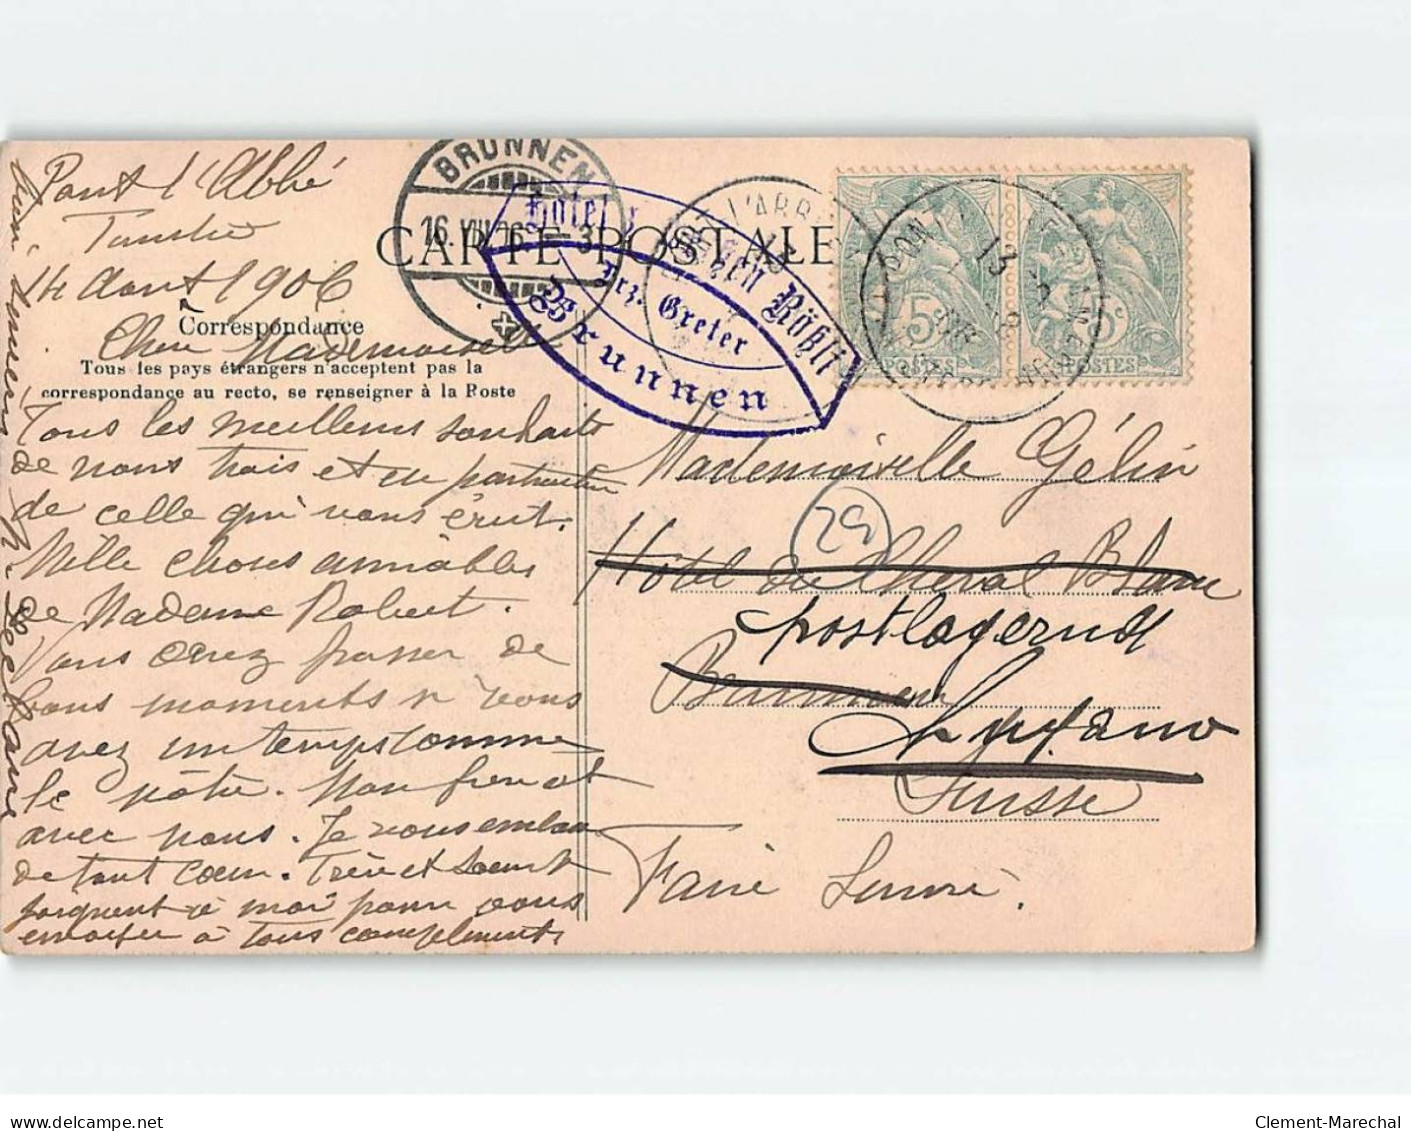 Pont l'Abbé
14 Aout 1906
CARTE POSTALE
Correspondance
Tous les pays étrangers n'acceptent pas la
correspondance au recto, se renseigner à la Poste
Chère Mademoiselle
Tous les meilleurs souhaits
de nous trois et en particulier
de celle qui vous écrit.
Mille choses aimables
de Madame Robert.
Vous devez passer de
bons moments si vous
avez un temps comme
le nôtre. Mon frère est
avec nous. Je vous embrasse
de tout cœur. Frère et soeur
joignent à moi pour vous
envoyer à tous compliments
BRUNNEN
16. VIII. 06. - 3
Hotel z. weißen Rößli
Frz. Greter
Brunnen
5c
POSTES
5c
POSTES
PONT L'ABBE
13
Mademoiselle Gélin
29
Hôtel du Cheval Blanc
postlagernd
Brunnen
Lugano
Suisse
Faire suivre.
Clement-Marechal